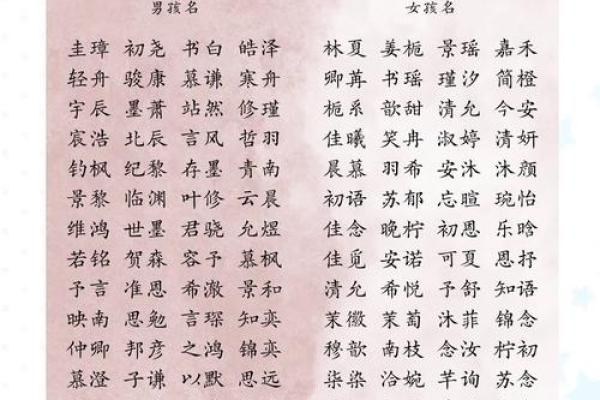 男孩名 女孩名
圭璋 初尧 书白 皓泽 林夏 姜栀 景瑶 嘉禾
轻舟 骏康 慕谦 寒舟 卿苒 书瑶 瑾汐 简橙
宇辰 墨萧 站然 修瑾 栀系 歆甜 清允 今安
宸浩 北辰 言风 哲羽 佳曦 笑冉 淑婷 清妍
钓枫 纪黎 存墨 青南 晨慕 羽希 安沐 沐颜
景黎 临渊 叶修 云晨 初语 苏郁 忘暄 琬怡
维鸿 世墨 君骁 允煜 佳念 晚柠 初恩 乐晗
若铭 贺森 容予 慕枫 佳觅 安诺 可夏 恩抒
予言 准恩 希澈 景和 清允 希悦 予舒 知语
映南 思勉 言琛 知奕 茉徽 茉萄 沐菲 锦念
仲卿 邦彦 之鸿 锦奕 穆歆 南枝 念汝 柠初
慕澄 子谦 以默 思远 柒染 洽婉 芊询 苏念